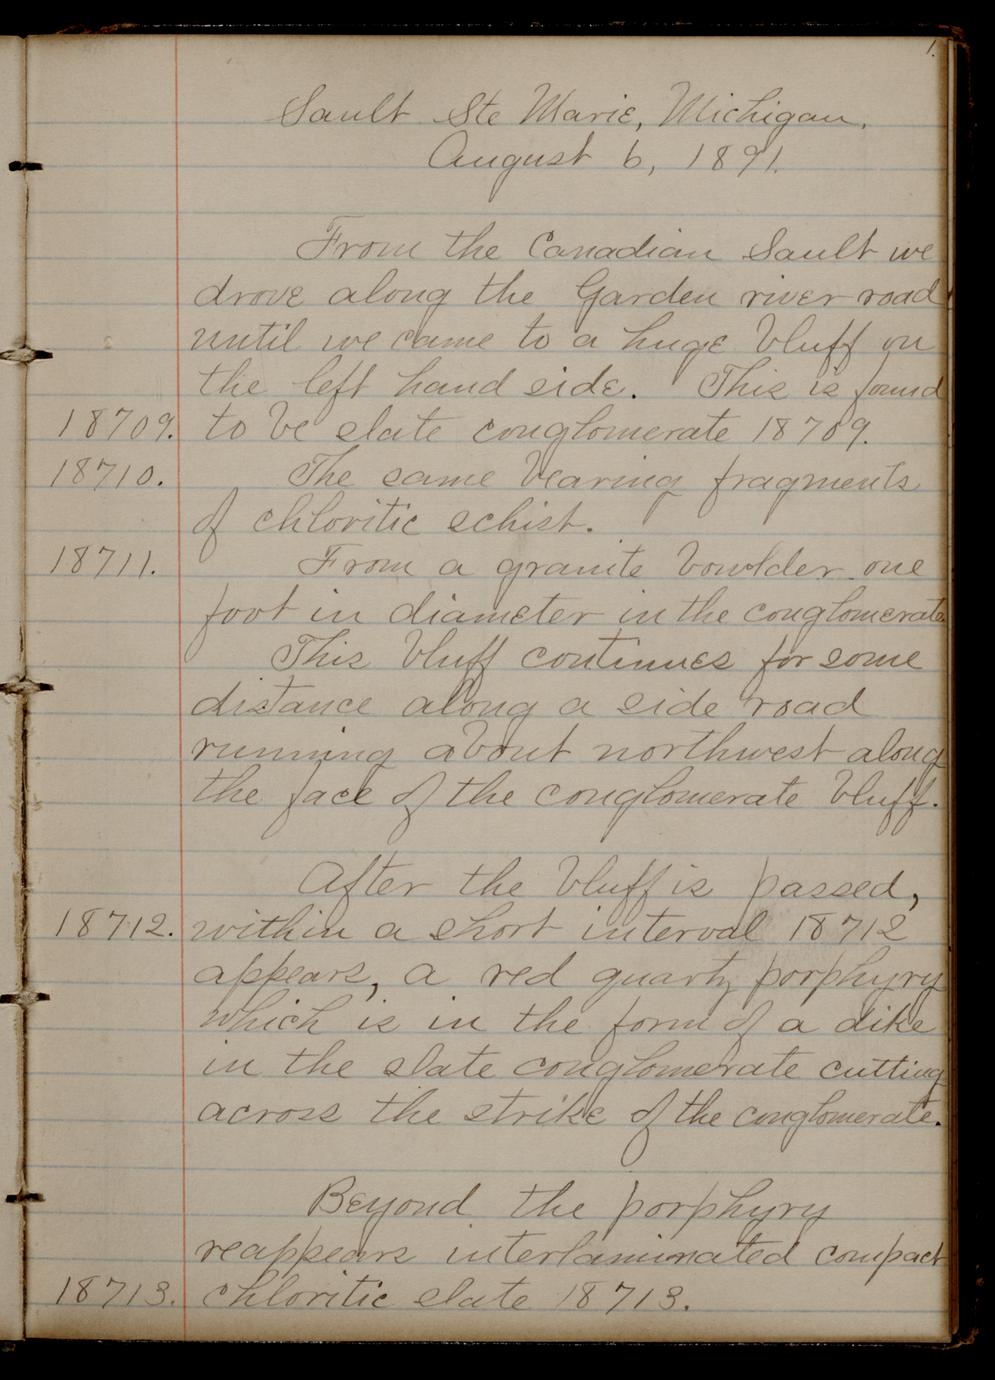 1.
Sault Ste Marie, Michigan.
August 6, 1891.
From the Canadian Sault we
drove along the Garden river road
until we came to a huge bluff on
the left hand side. This is found
18709. to be slate conglomerate 18709.
18710. The same bearing fragments
of chloritic schist.
18711. From a granite bowlder one
foot in diameter in the conglomerate
This bluff continues for some
distance along a side road
running about northwest along
the face of the conglomerate bluff.
After the bluff is passed,
18712. within a short interval 18712
appears, a red quartz porphyry
which is in the form of a dike
in the slate conglomerate cutting
across the strike of the conglomerate.
Beyond the porphyry
reappears interlaminated compact
18713. chloritic slate 18713.